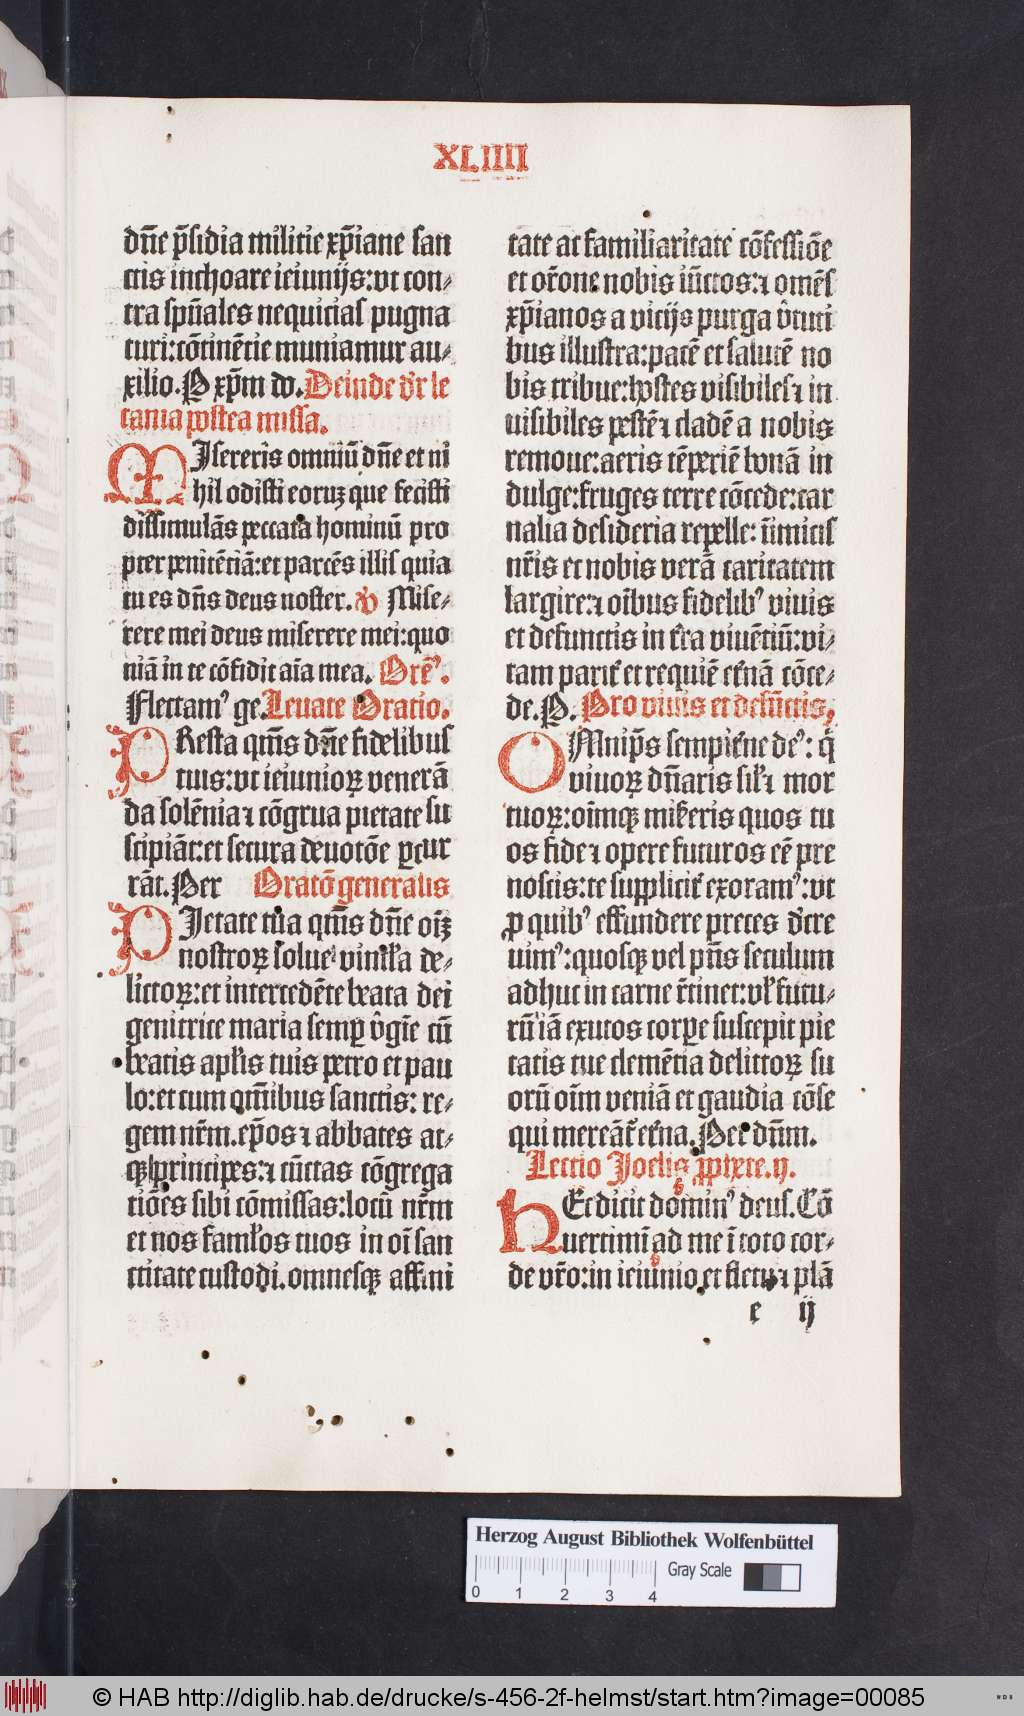 XLIIII
dn̄e p̄sidia militie xp̄iane san
ctis inchoare ieiunijs:vt con⸗
tra spūales nequicias pugna
turi:cōtinētie muniamur au⸗
xilio. P xp̄m do. Deinde dr̄ le
tania postea missa.
MIsereris omniū dn̄e et ni
hil odisti eoruꝫ que fecisti
dissimulās peccata hominū pro
pter penitētiā:et parcēs illis quia
tu es dn̄s deus noster. ꝟ Mise⸗
rere mei deus miserere mei:quo
niā in te cōfidit aīa mea. Orēꝰ.
Flectamꝰ ge. Leuate Oratio.
PResta qm̄s dn̄e fidelibus
tuis:vt ieiunioꝝ venerā
da solēnia ⁊ cōgrua pietate su
scipiāt:et secura deuotōe ꝑcur
rāt. Per Oratō generalis
PIetate tua qm̄s dn̄e oīꝫ
nostroꝝ solue vincl̄a de⸗
lictoꝝ:et intercedēte beata dei
genitrice maria semꝑ v̄gīe cū
beatis apl̄is tuis petro et pau
lo:et cum om̄ibus sanctis: re⸗
gem nr̄m.ep̄os ⁊ abbates at⸗
qꝫ principes:⁊ cūctas cōgrega
tiōes sibi cōmissas:locū nr̄m
et nos faml̄os tuos in oī san
ctitate custodi.omnesqꝫ affini
tate ac familiaritate cōfessiōe
et or̄one nobis iūctos:⁊ omēs
xp̄ianos a vicijs purga v̄tuti
bus illustra:pacē et salutē no
bis tribue:hostes visibiles ⁊ in
uisibiles pestē ⁊ cladē a nobis
remoue:aeris tēperiē bonā in
dulge:fruges terre cōcede:car
nalia desideria repelle: inimicis
nr̄is et nobis verā caritatem
largire:⁊ oībus fidelibꝰ viuis
et defunctis in tr̄a viuētiū:vi⸗
tam parit̄ et requiē et̄nā cōce⸗
de. P. Pro viuis et defūctis,
OMnip̄s sempit̄ne deꝰ: q̄
viuoꝝ dn̄aris sil̄ ⁊ mor
tuoꝝ:oīmqꝫ mis̄eris quos tu
os fide ⁊ opere futuros eē pre
noscis:te supplicit̄ exoramꝰ:vt
ꝓ quibꝰ effundere preces dc̄re
uimꝰ:quosqꝫ vel pn̄s seculum
adhuc in carne r̄tinet:vl̄ futu⸗
rū iā exutos corpore suscepit pie
tatis tue clemētia delictoꝝ su
orū oīm veniā et gaudia cōse
qui mereāt̄ et̄na. Per dn̄m.
Lectio Joelis ꝓphete.ij.
HEc dicit dominꝰ deus. Cō
uertimī ad me ī toto cor⸗
de vr̄o:in ieiunio et fletu ⁊ plā
e ij
Herzog August Bibliothek Wolfenbüttel
Gray Scale
0 1 2 3 4
© HAB http://diglib.hab.de/drucke/s-456-2f-helmst/start.htm?image=00085